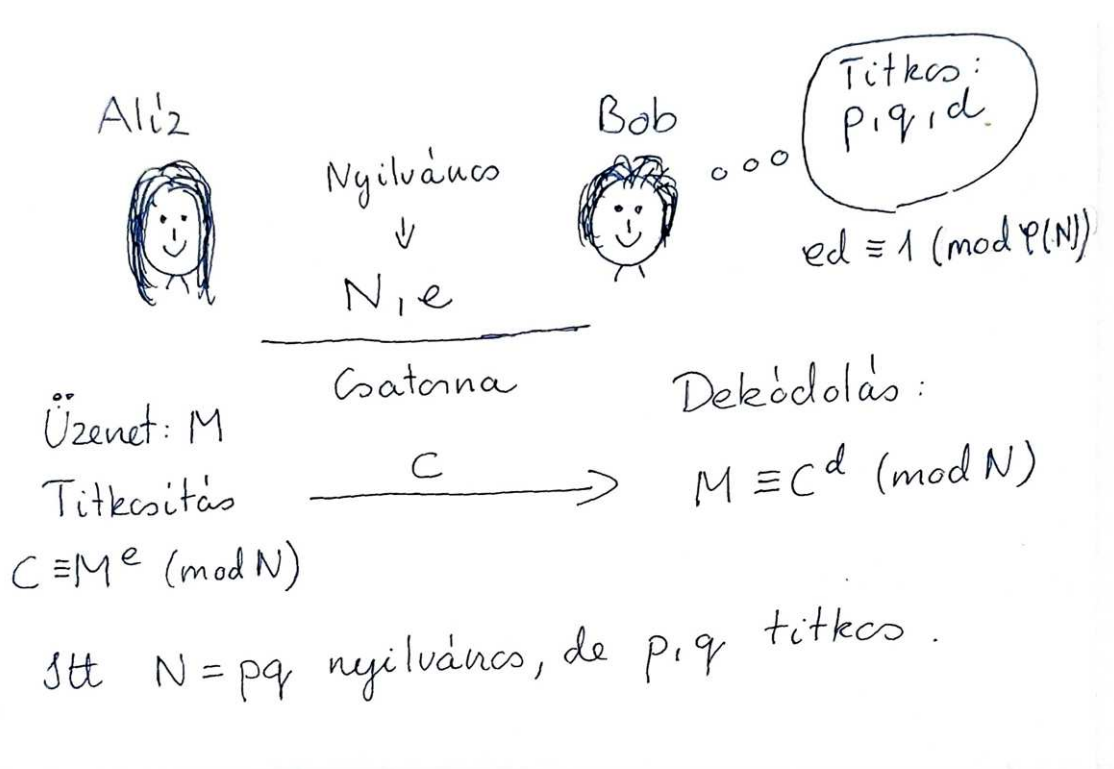 Alíz
Bob
Titkos:
p, q, d.
Nyilvános
↓
N, e
ed ≡ 1 (mod φ(N))
Csatorna
Üzenet: M
Titkosítás
C ≡ M^e (mod N)
C
Dekódolás:
M ≡ C^d (mod N)
Itt N = pq nyilvános, de p, q titkos.